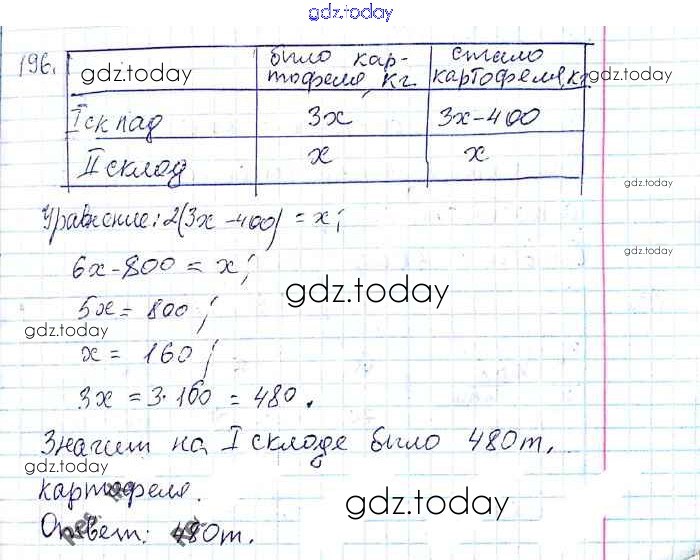 gdz.today
196.
gdz.today
было кар-
тофеля, кг
стало
картофеля, кг
gdz.today
I склад
3x
3x-400
II склад
x
x
gdz.today
Уравнение: 2(3x-400) = x;
gdz.today
6x-800 = x;
gdz.today
5x = 800;
gdz.today
x = 160;
3x = 3·160 = 480.
Значит на I складе было 480т.
gdz.today
картофеля.
gdz.today
Ответ: 480т.